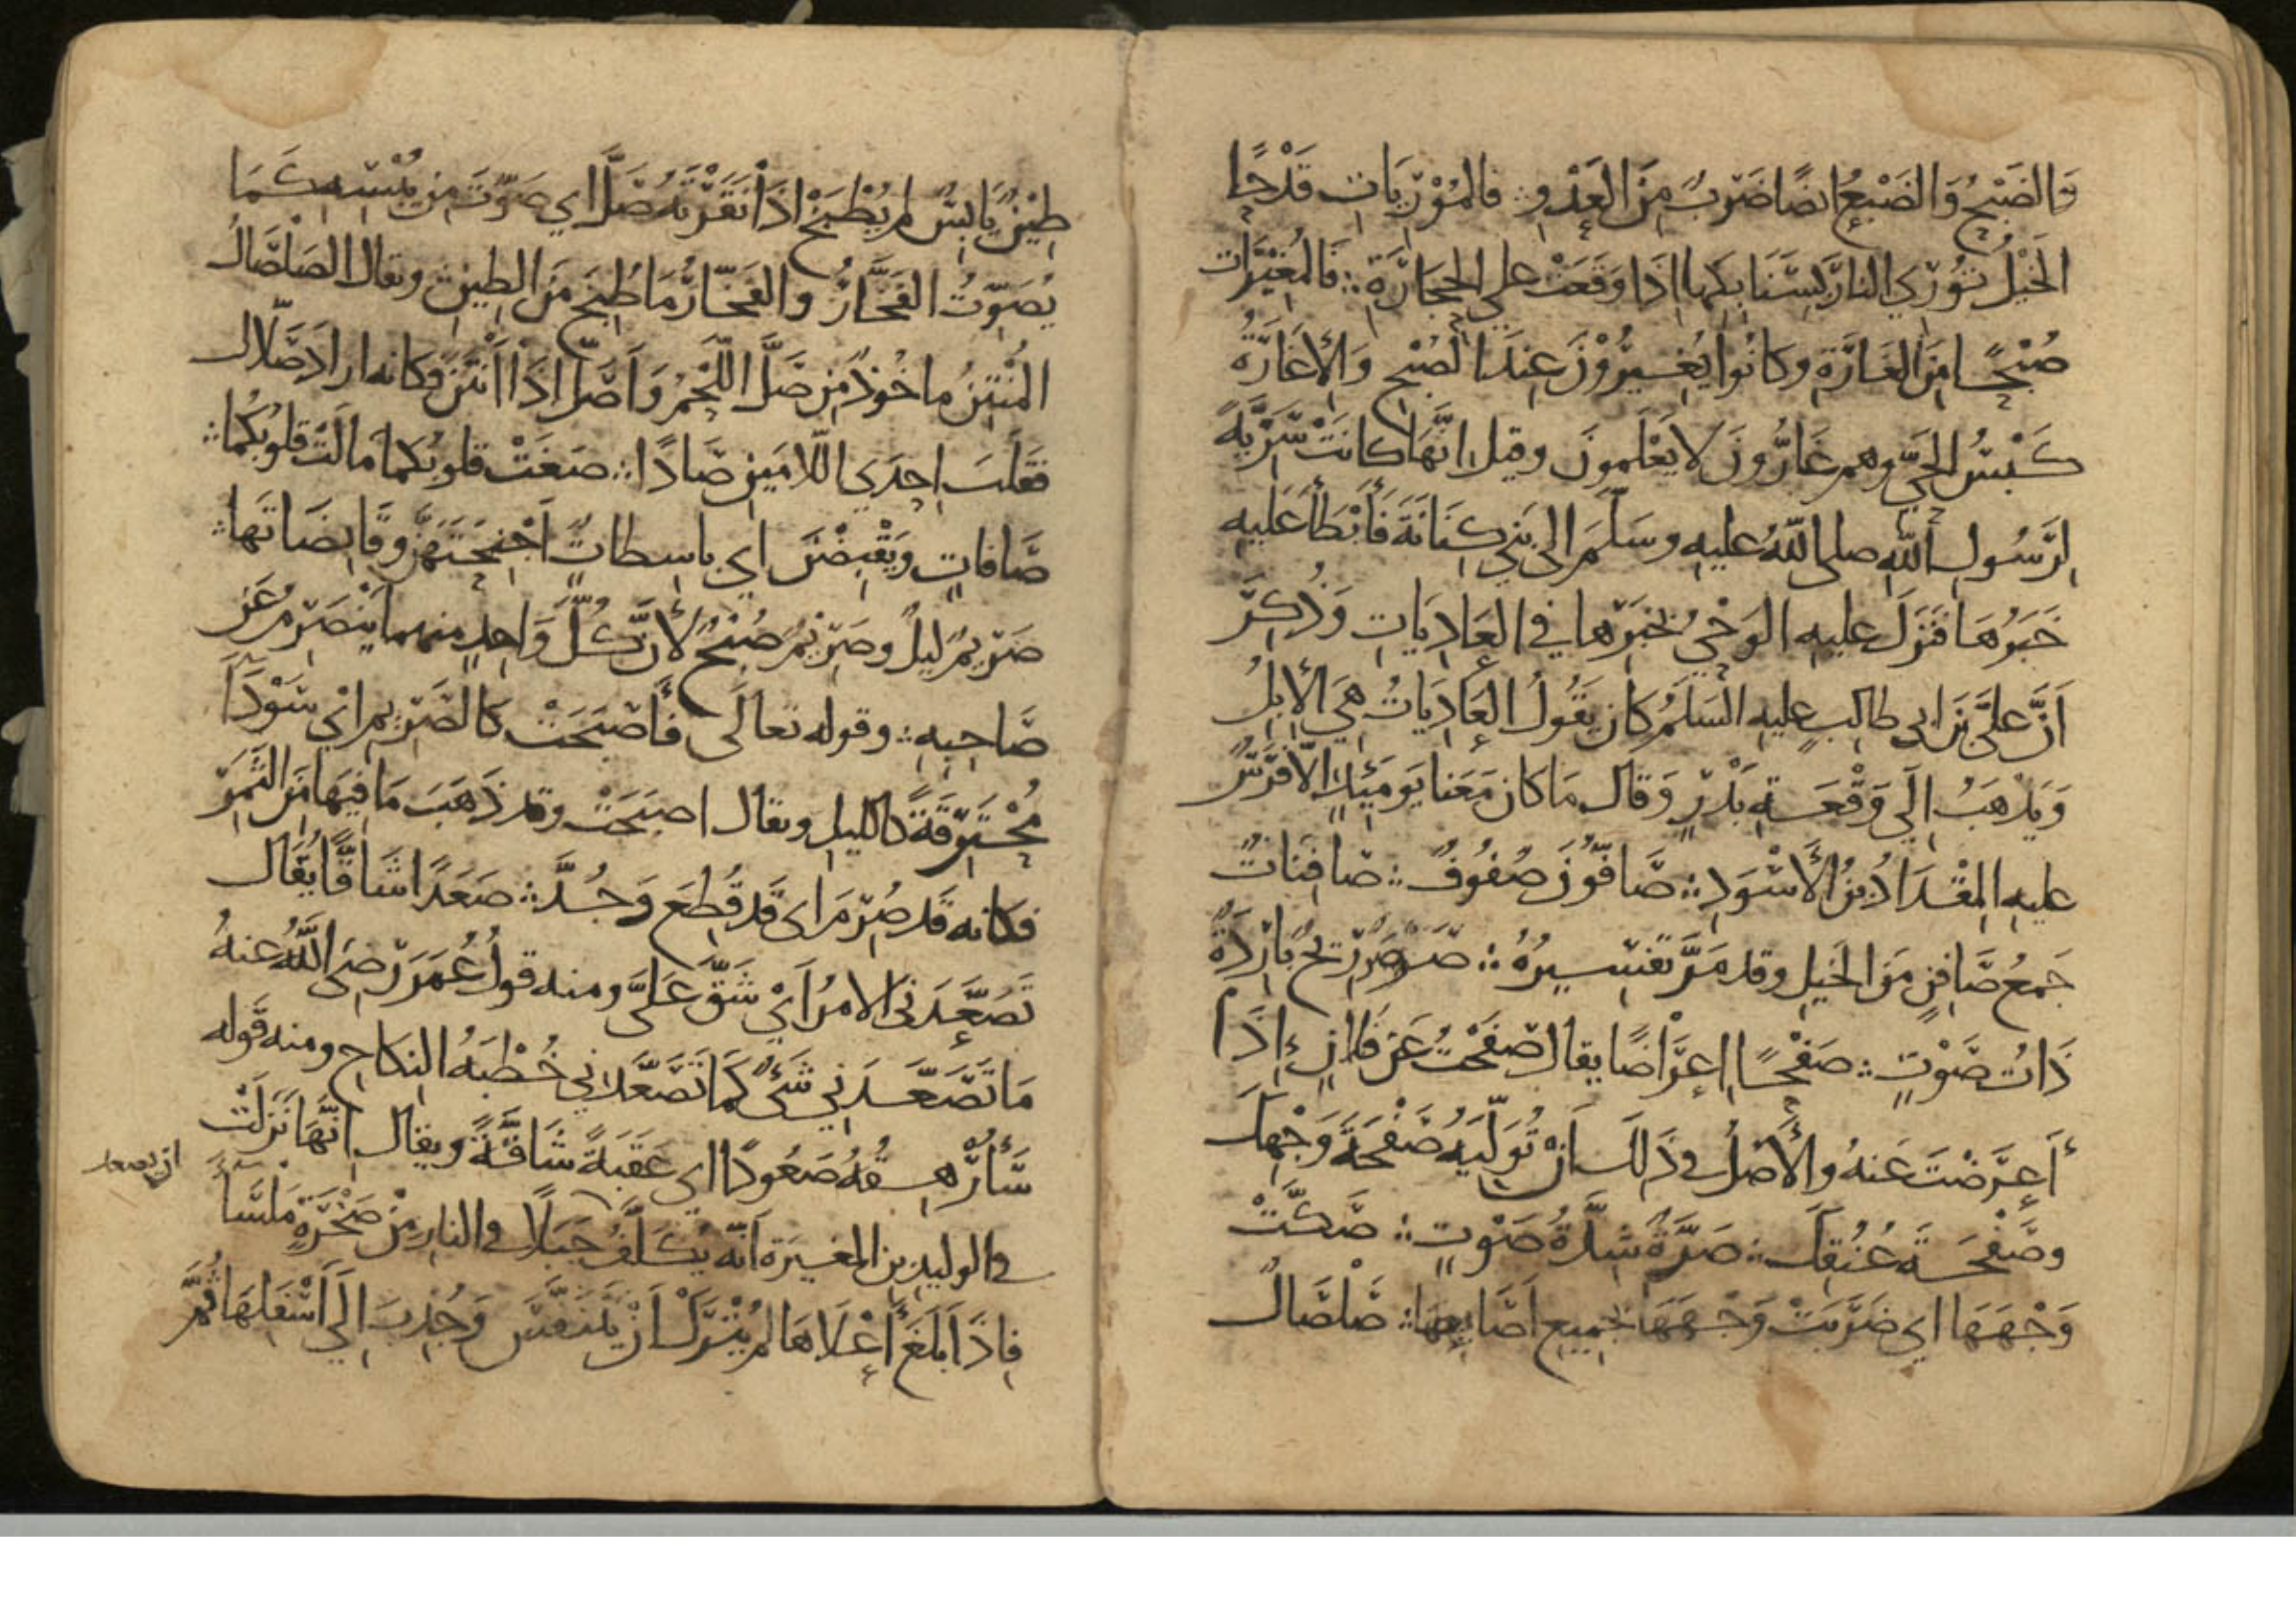 وَالضَبْحُ وَالضَبْعُ ايضًا ضَرْبٌ مِنَ العَدْوِ ؞ فالمُوْرِيَاتِ قَدْحًا
الخَيْلُ تُوْرِي النارَ بِسَنَابِكِها اذَا وَقَعَتْ على الحِجَارَةِ ؞ فَالمُغِيْرَاتِ
صُبْحًا مِنَ الغَارَةِ وكانُوا يُغِيرُوْنَ عِندَ الصُبْحِ وَالإغَارَةُ
كَبْسُ الحَيِّ وهم غَارُّونَ لا يَعْلَمونَ وقيل انَّهَا كانَتْ سَرِيَّةً
لِرَسُولِ اللّهِ صلى اللّهُ عليهِ وسَلَّمَ الى بَنِي كِنَانَةَ فَأَبْطَأَ عَلَيهِ
خَبَرُهَا فَنَزَلَ عليهِ الوَحْيُ بخَبَرِها فِي العَادِيَاتِ وَذُكِرَ
اَنَّ عليَّ بنَ ابي طالبٍ عليهِ السَلَمُ كانَ يَقُولُ العَادِيَاتُ هيَ الإبِلُ
وَيَذْهَبُ إلَى وَقْعَةِ بَدْرٍ وَقال مَا كان مَعَنا يَومَئِذٍ الّا فَرَسٌ
عليهِ المِقْدَادُ بنُ الأَسْوَدِ ؞ صَافّونَ صُفُوفٌ ؞ صَافِنَاتٌ
جَمعُ صَافِنٍ مِنَ الخَيلِ وقد مَرَّ تَفسِيرُهُ ؞ صَرصَرٌ رِيحٌ بَارِدَةٌ
ذَاتُ صَوْتٍ ؞ صَفْحًا اِعرَاضًا يقال صَفَحْتُ عَن فُلانٍ إذَا
أَعرَضْتَ عَنهُ والأَصْلُ في ذَلِكَ اَنْ تُوَلِّيَهُ صَفْحَةَ وَجْهِكَ
وصَفْحَةَ عُنُقِكَ ؞ صَرَّةٌ شِدَّةُ صَوْتٍ ؞ صَكَّتْ
وَجْهَهَا اي ضَرَبَتْ وَجْهَهَا بجَمِيعِ اَصَابِعِهَا ؞ صَلْصَالٌ
طِيْنٌ يَابِسٌ لم يُطْبَخْ اذَا نَقَرْتَهُ صَلَّ اي صَوَّتَ مِن يُبْسِهِ كَمَا
يُصَوِّتُ الفَخَّارُ والفَخَّارُ مَا طُبِخَ مِنَ الطِينِ ويقال الصَلْصَالُ
المُنْتِنُ ماخُوذٌ مِن صَلَّ اللَّحْمُ وَاَصَلَّ اذَا اَنْتَنَ فكانه ارادَ صَلّالٌ
فقَلَبَ اِحدَي اللّامَينِ صَادًا ؞ صَغَتْ قلوبُكما مالَتْ قلوبُكُما ؞
صَافاتٍ وَيَقْبِضْنَ اي باسِطاتٌ اَجْنِحَتَهُنَّ وقَابِضَاتُها ؞
صَرِيمٌ لَيلٌ وصَرِيْمٌ صُبْحٌ لأنَّ كُلَّ وَاحِدٍ منهما يَنصَرِمُ عَن
صَاحِبِهِ ؞ وقوله تعالَى فأَصْبَحَتْ كالصَرِيمِ ايْ سَوْدَآءَ
مُحْتَرِقَةً كالليلِ ويقال اصبَحَتْ وقد ذَهَبَ مَا فِيهَا مِنَ الثَّمَرِ
فكانه قَد صُرِمَ اي قَد قُطِعَ وَجُدَّ ؞ صَعَدًا شَاقًّا يُقَال
تَصَعَّدَنِي الامرُ اَيْ شَقَّ عَلَيَّ ومنه قولُ عُمَرَ رَضِيَ اللَّهُ عنهُ
مَا تَصَعَّدَنِي شَئٌ كَمَا تَصَعَّدَني خُطْبَةُ النكاحِ ومنه قَوله
سَأُرْهِقُهُ صَعُودًا اي عَقَبَةً شَاقَّةً ويقال انَّهَا نَزَلَتْ
في الوليدِ بنِ المغيرَةِ اَنَّه يُكَلَّفُ جَبَلًا في النارِ مِنْ صَخْرَةٍ مَلسَآءَ
ان يصعد
فاذَا بَلَغَ أَعْلَاهَا لم يُتْرَكْ اَنْ يَتَنَفَّسَ وَجُذِبَ إلَي اَسْفَلِهَا ثُمَّ